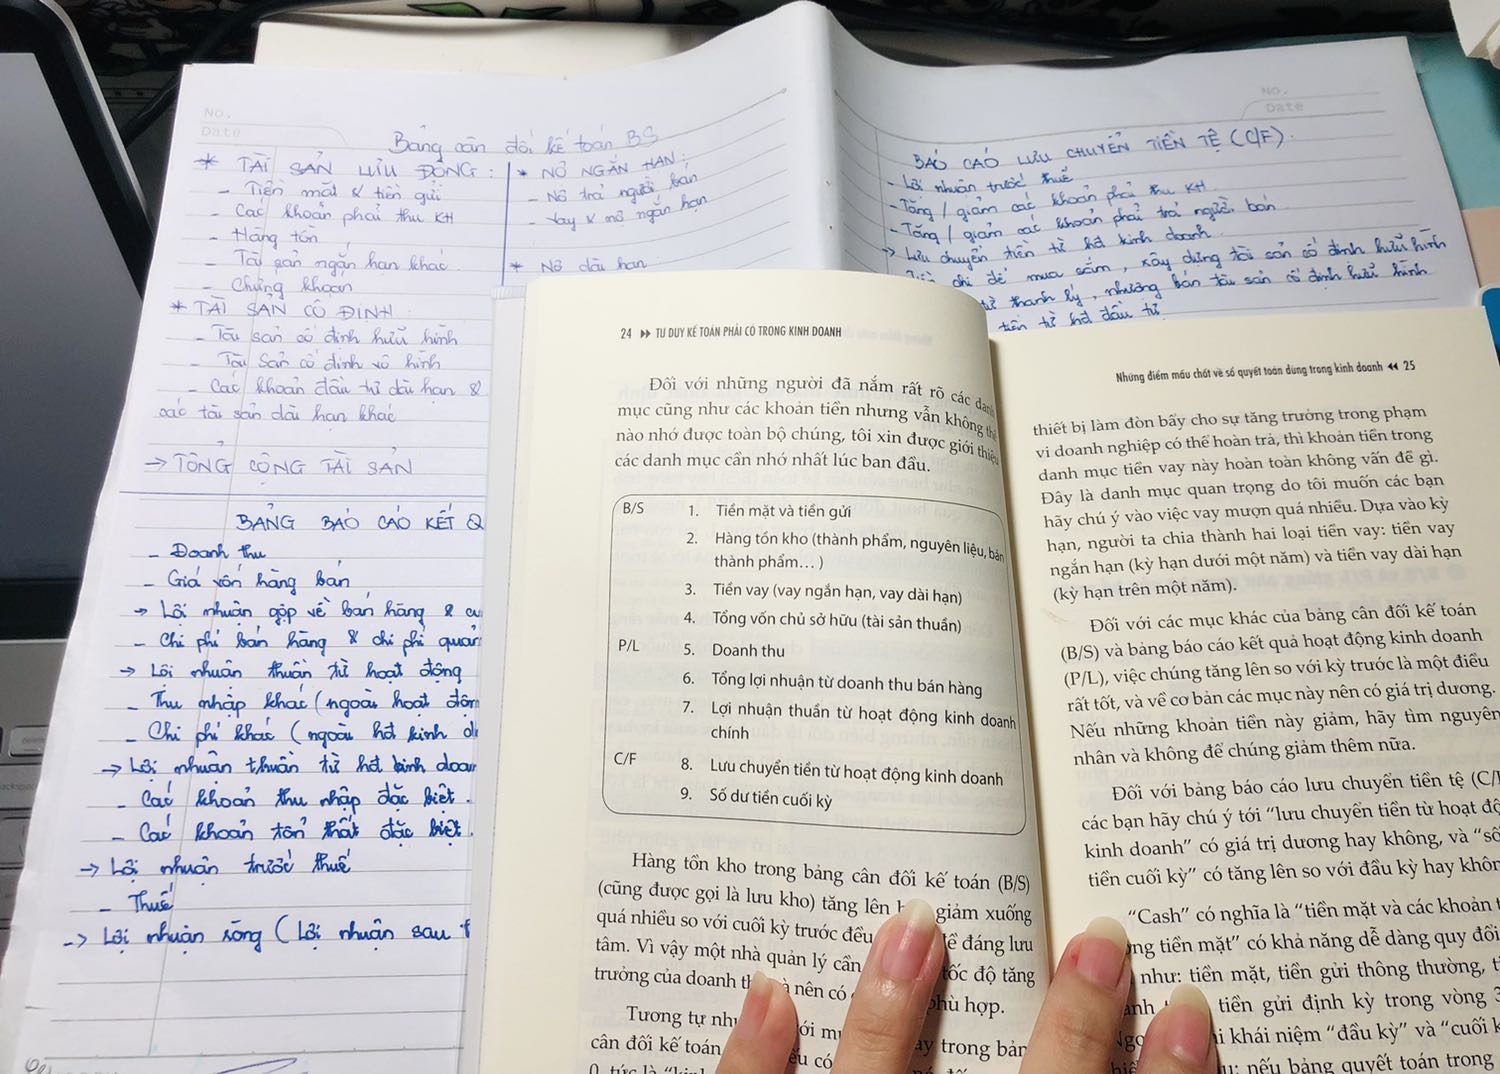 No.
Date
Bảng cân đối kế toán BS
* TÀI SẢN LƯU ĐỘNG:
- Tiền mặt & tiền gửi
- Các khoản phải thu KH
- Hàng tồn
- Tài sản ngắn hạn khác
- Chứng khoán
* TÀI SẢN CỐ ĐỊNH
- Tài sản cố định hữu hình
- Tài sản cố định vô hình
- Các khoản đầu tư dài hạn &
các tài sản dài hạn khác
→ TỔNG CỘNG TÀI SẢN
* NỢ NGẮN HẠN:
- Nợ trả người bán
- Vay & nợ ngắn hạn
* Nợ dài hạn
BẢNG BÁO CÁO KẾT Q
- Doanh thu
- Giá vốn hàng bán
→ Lợi nhuận gộp về bán hàng &
- Chi phí bán hàng & chi phí quản
→ Lợi nhuận thuần từ hoạt động
- Thu nhập khác (ngoài hoạt độn
- Chi phí khác (ngoài hđ kinh d
→ Lợi nhuận thuần từ hđ kinh doan
- Các khoản thu nhập đặc biệt.
- Các khoản tổn thất đặc biệt.
→ Lợi nhuận trước thuế
- Thuế
→ Lợi nhuận ròng (Lợi nhuận sau t
No.
Date
BÁO CÁO LƯU CHUYỂN TIỀN TỆ (C/F).
- Lợi nhuận trước thuế
- Tăng / giảm các khoản phải thu KH.
- Tăng / giảm các khoản phải trả người bán
→ Lưu chuyển tiền từ hđ kinh doanh.
chi để mua sắm, xây dựng tài sản cố định hữu hình
từ thanh lý, nhượng bán tài sản cố định hữu hình
tiền từ hđ đầu tư
24 TƯ DUY KẾ TOÁN PHẢI CÓ TRONG KINH DOANH
Đối với những người đã nắm rất rõ các danh
mục cũng như các khoản tiền nhưng vẫn không thể
nào nhớ được toàn bộ chúng, tôi xin được giới thiệu
các danh mục cần nhớ nhất lúc ban đầu.
B/S 1. Tiền mặt và tiền gửi
2. Hàng tồn kho (thành phẩm, nguyên liệu, bán
thành phẩm... )
3. Tiền vay (vay ngắn hạn, vay dài hạn)
4. Tổng vốn chủ sở hữu (tài sản thuần)
P/L 5. Doanh thu
6. Tổng lợi nhuận từ doanh thu bán hàng
7. Lợi nhuận thuần từ hoạt động kinh doanh
chính
C/F 8. Lưu chuyển tiền từ hoạt động kinh doanh
9. Số dư tiền cuối kỳ
Hàng tồn kho trong bảng cân đối kế toán (B/S)
(cũng được gọi là lưu kho) tăng lên giảm xuống
quá nhiều so với cuối kỳ trước đều để đáng lưu
tâm. Vì vậy một nhà quản lý cần tốc độ tăng
trưởng của doanh nên có phù hợp.
Tương tự mục trong bản
cân đối kế toán có
0, tức là
Những điểm mấu chốt về sổ quyết toán dùng trong kinh doanh 25
thiết bị làm đòn bẩy cho sự tăng trưởng trong phạm
vi doanh nghiệp có thể hoàn trả, thì khoản tiền trong
danh mục tiền vay này hoàn toàn không vấn đề gì.
Đây là danh mục quan trọng do tôi muốn các bạn
hãy chú ý vào việc vay mượn quá nhiều. Dựa vào kỳ
hạn, người ta chia thành hai loại tiền vay: tiền vay
ngắn hạn (kỳ hạn dưới một năm) và tiền vay dài hạn
(kỳ hạn trên một năm).
Đối với các mục khác của bảng cân đối kế toán
(B/S) và bảng báo cáo kết quả hoạt động kinh doanh
(P/L), việc chúng tăng lên so với kỳ trước là một điều
rất tốt, và về cơ bản các mục này nên có giá trị dương.
Nếu những khoản tiền này giảm, hãy tìm nguyên
nhân và không để chúng giảm thêm nữa.
Đối với bảng báo cáo lưu chuyển tiền tệ (C/
các bạn hãy chú ý tới “lưu chuyển tiền từ hoạt độ
kinh doanh” có giá trị dương hay không, và “số
tiền cuối kỳ” có tăng lên so với đầu kỳ hay khôn
“Cash” có nghĩa là “tiền mặt và các khoản
tiền mặt” có khả năng dễ dàng quy đổi
như: tiền mặt, tiền gửi thông thường,
tiền gửi định kỳ trong vòng 3
khái niệm “đầu kỳ” và “cuối k
nếu bảng quyết toán trong